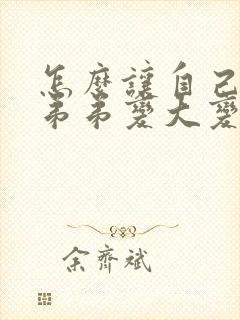 怎麼讓自己
弟弟變大變
余齊斌